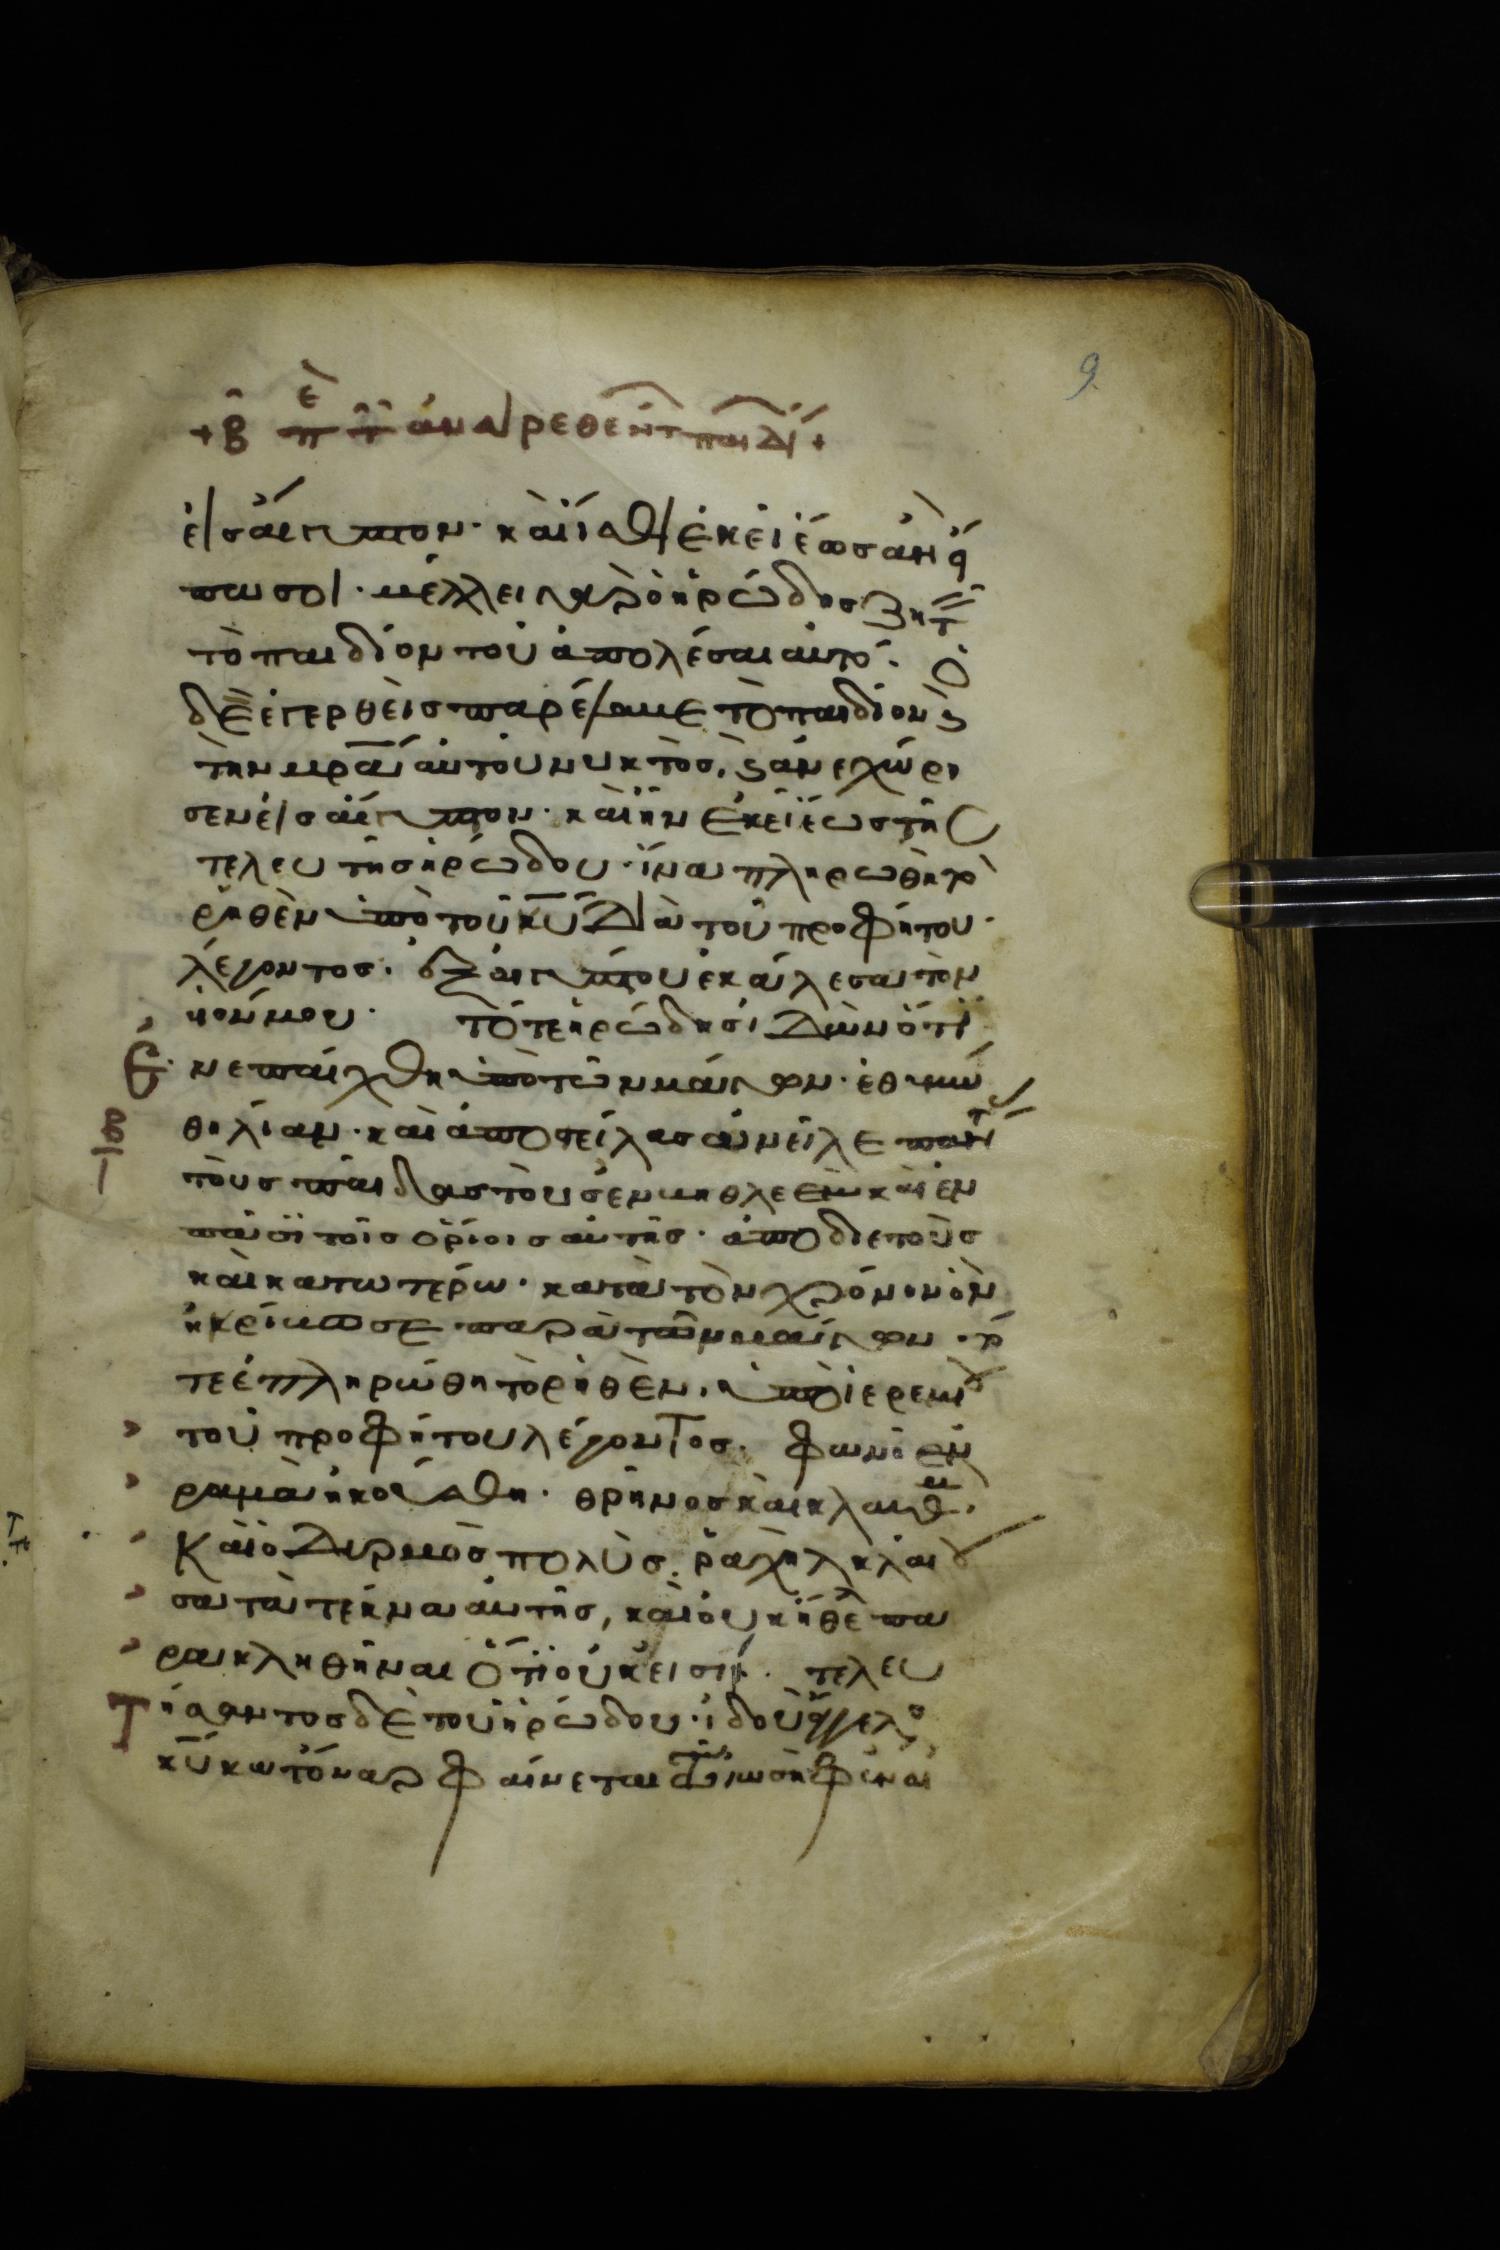 9
+ β̑ πὲ τ̑ ἀναιρεθέντ παιδί +
εἰς αἴγυπτον· καὶ ἴσθι ἐκεῖ ἕως ἂν εἴ
πω σοι· μέλλει γὰρ ὁ ἡρώδης ζητ
τὸ παιδίον τοῦ ἀπολέσαι αὐτό· ὁ
δὲ ἐγερθεὶς παρέλαβε τὸ παιδίον ϗ
τὴν μρ̅α αὐτοῦ νυκτὸς, ϗ ἀνεχώρι
σεν εἰς αἴγυπτον· καὶ ἦν ἐκεῖ ἕως τῆς
τελευτῆς ἡρώδου· ἵνα πληρωθῆ τὸ
ῥηθὲν ὑπὸ τοῦ κ̅υ̅ διὰ τοῦ προφήτου·
λέγοντος· ἐξ αἰγύπτου ἐκάλεσα τὸν
υἱόν μου· Τότε ἡρώδης ἰδὼν ὅτι
Ἐ νεπαίχθη ὑπὸ τῶν μάγων· ἐθυμώ
β θη λίαν· καὶ ἀποστείλας ἀνεῖλε πάντ
τοὺς παῖδας τοὺς ἐν βηθλεὲμ καὶ ἐν
πᾶσι τοῖς ὁρίοις αὐτῆς· ἀπὸ διετοῦς
καὶ κατωτέρω· κατὰ τὸν χρόνον ὃν
ἠκρίβωσε παρὰ τῶν μάγων· τό
τε ἐπληρώθη τὸ ρηθὲν, ὑπὸ ἱερεμίου
τοῦ προφήτου λέγοντος· φωνὴ ἐν
ραμὰ ἠκούσθη· θρῆνος καὶ κλαυθμ·
Καὶ ὀδυρμὸς πολὺς· ῥαχὴλ κλαίου
σα τὰ τέκνα αὐτῆς, καὶ οὐκ ἤθελε πα
ρακληθῆναι ὅτι οὐκ εἰσίν· τελευ
Τ ήσαντος δὲ τοῦ ἡρώδου· ἰδοὺ ἄγγελος
κ̅υ̅ κατ' ὄναρ φαίνεται τῷ ἰωσὴφ ἐν αἰ